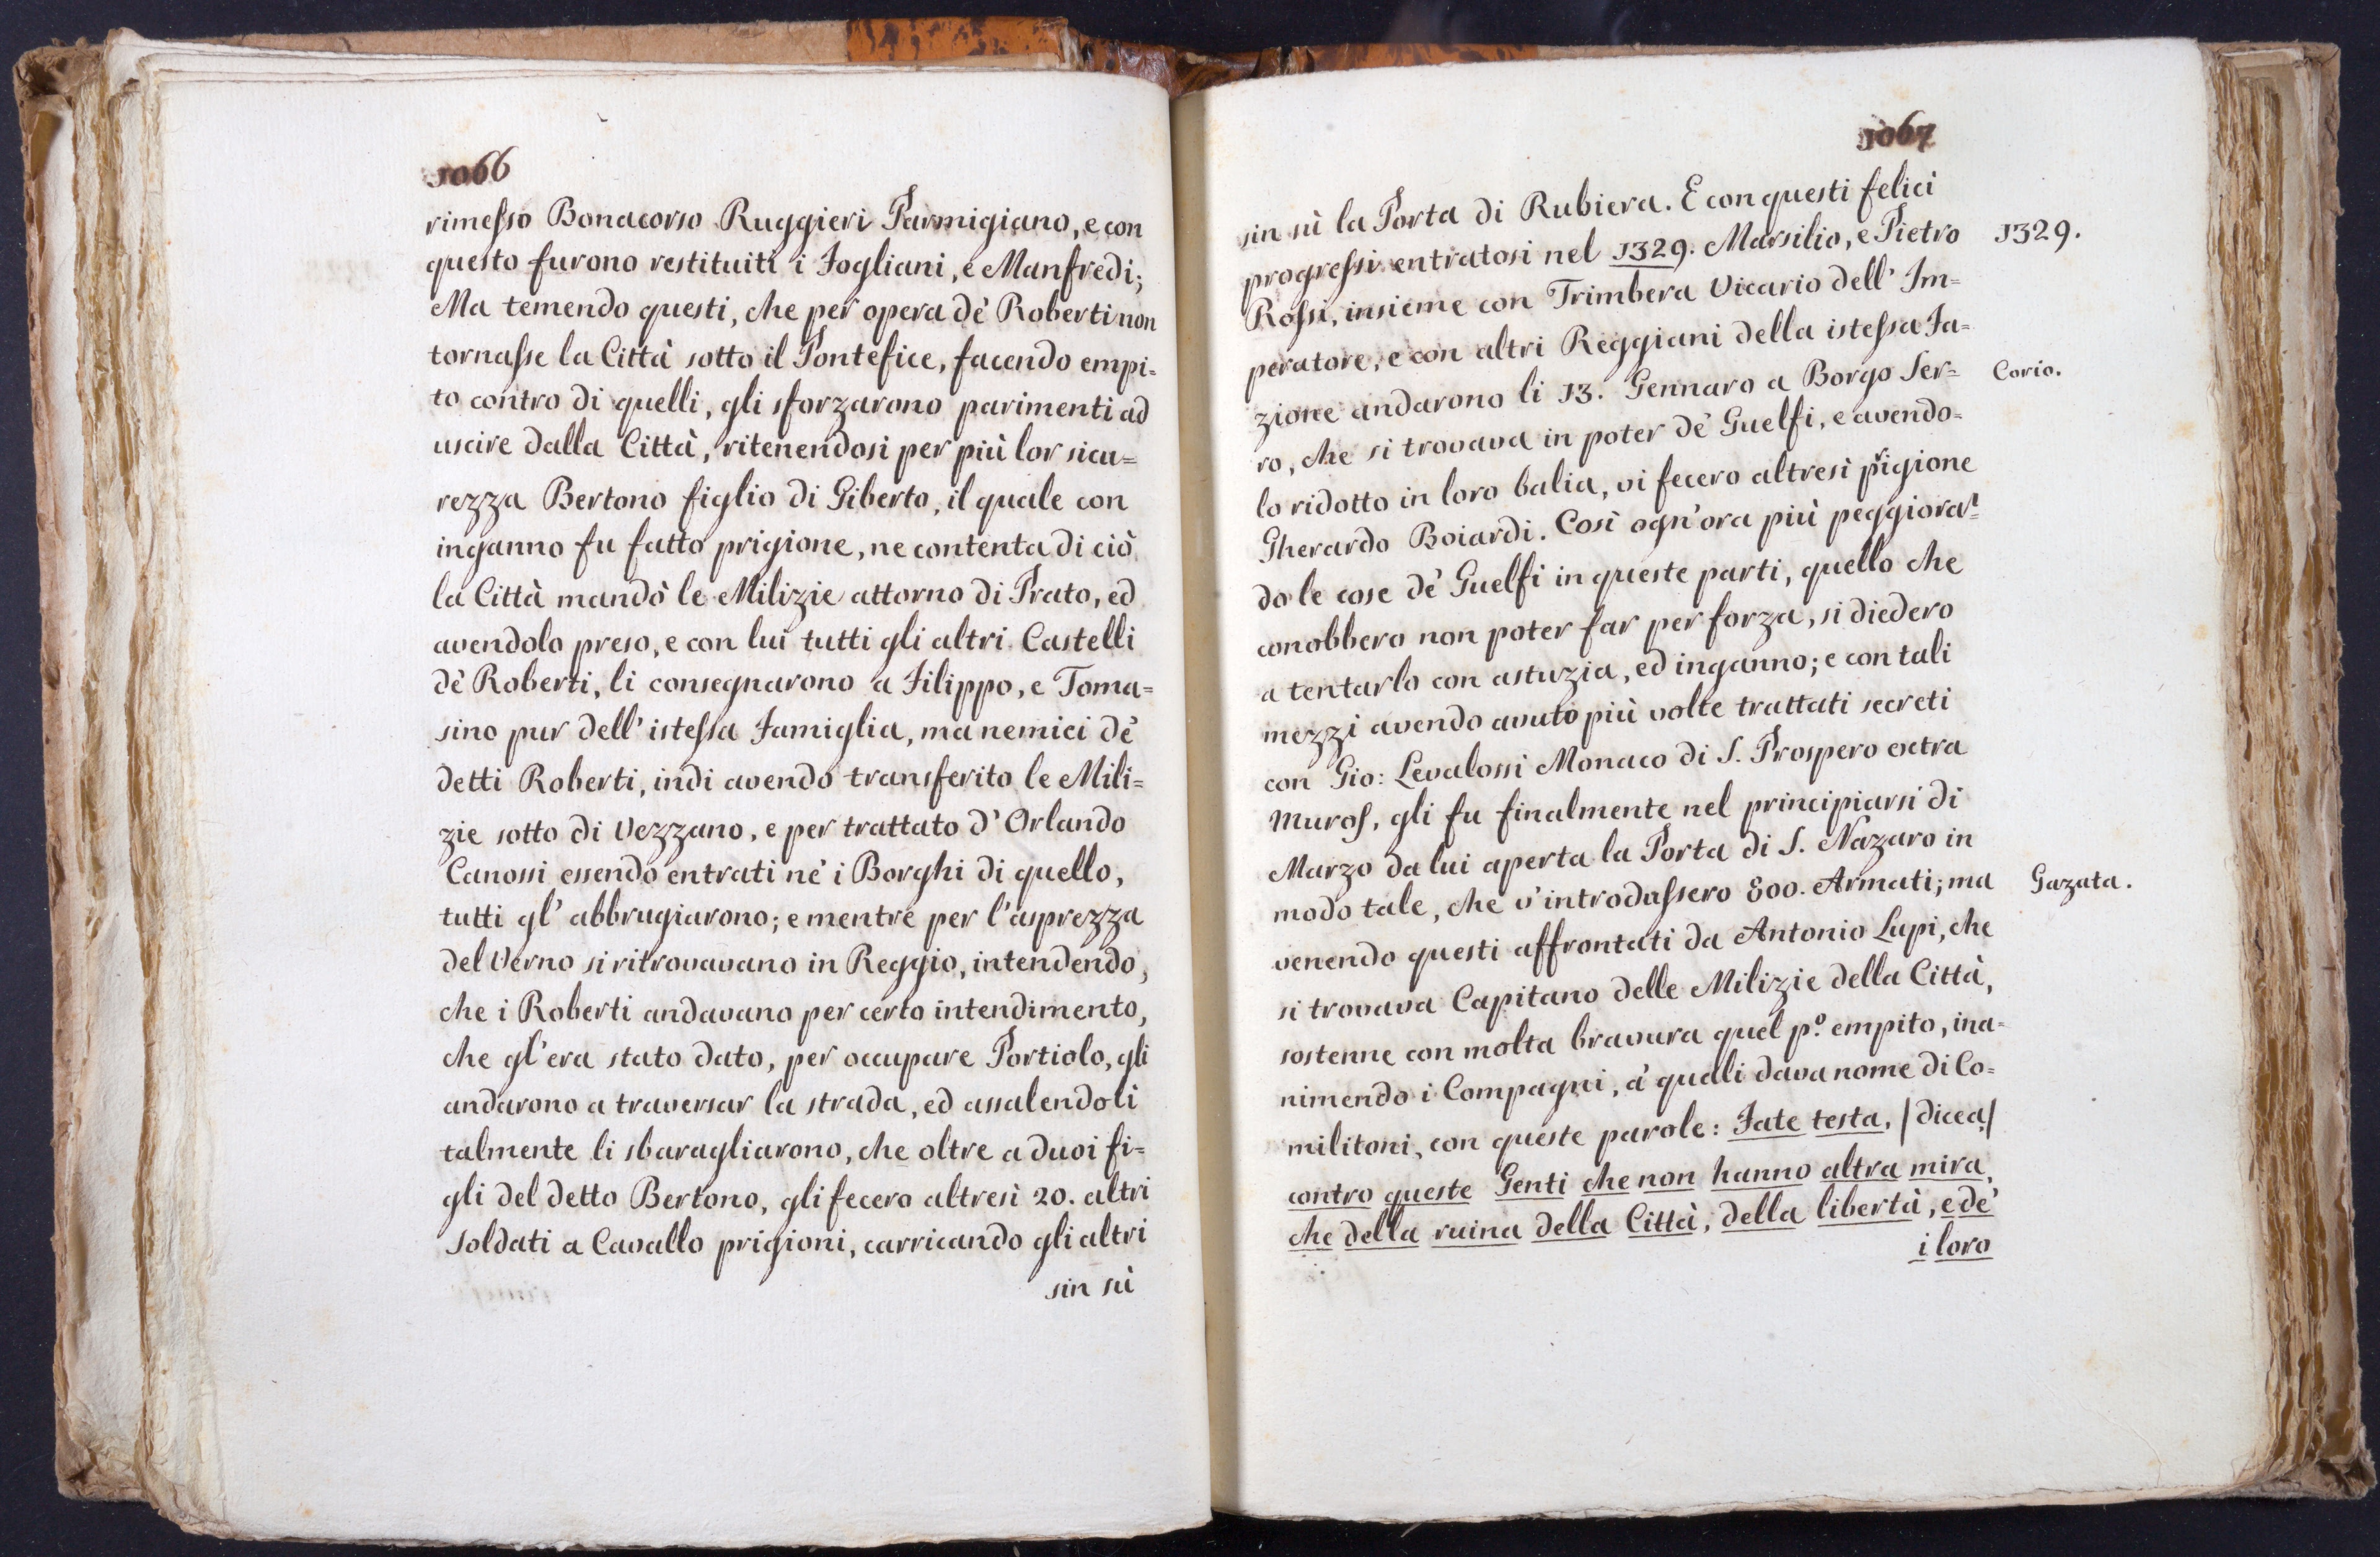 1066
rimesso Bonacorso Ruggieri Parmigiano, e con
questo furono restituiti i Fogliani, e Manfredi;
Ma temendo questi, che per opera de' Roberti non
tornasse la Città sotto il Pontefice, facendo empi-
to contro di quelli, gli sforzarono parimenti ad
uscire dalla Città, ritenendosi per più lor sicu=
rezza Bertono figlio di Giberto, il quale con
inganno fu fatto prigione, ne contenta di ciò
la Città mandò le Milizie attorno di Prato, ed
avendolo preso, e con lui tutti gli altri Castelli
de' Roberti, li consegnarono a Filippo, e Toma=
sino pur dell' istessa Famiglia, ma nemici de'
detti Roberti, indi avendo transferito le Mili=
zie sotto di Vezzano, e per trattato d' Orlando
Canossi essendo entrati ne' i Borghi di quello,
tutti gl' abbrugiarono; e mentre per l' asprezza
del Verno si ritrovavano in Reggio, intendendo,
che i Roberti andavano per certo intendimento,
che gl' era stato dato, per occupare Portiolo, gli
andarono a traversar la strada, ed assalendoli
talmente li sbaragliarono, che oltre a duoi fi=
gli del detto Bertono, gli fecero altresì 20. altri
Soldati a Cavallo prigioni, carricando gli altri
sin sù
1067
sin sù la Porta di Rubiera. E con questi felici
progressi entratosi nel 1329. Marsilio, e Pietro
1329.
Rossi, insieme con Trimbera Vicario dell' Im=
peratore, e con altri Reggiani della istessa Fa=
zione andarono li 13. Gennaro a Borgo Ser=
Corio.
ro, che si trovava in poter de' Guelfi, e avendo=
lo ridotto in loro balia, vi fecero altresì prigione
Gherardo Boiardi. Così ogn' ora più peggioran=
do le cose de' Guelfi in queste parti, quello che
conobbero non poter far per forza, si diedero
a tentarlo con astuzia, ed inganno; e con tali
mezzi avendo avuto più volte trattati secreti
con Gio: Levalossi Monaco di S. Prospero extra
Muros, gli fu finalmente nel principiarsi di
Marzo da lui aperta la Porta di S. Nazaro in
modo tale, che v' introdassero 800. Armati; ma
Gazata.
venendo questi affrontati da Antonio Lupi, che
si trovava Capitano delle Milizie della Città,
sostenne con molta bravura quel p.º empito, ina=
nimendo i Compagni, a' quali dava nome di Co=
militoni, con queste parole: Fate testa, /dicea/
contro queste Genti che non hanno altra mira,
che della ruina della Città, della libertà, e de'
i loro